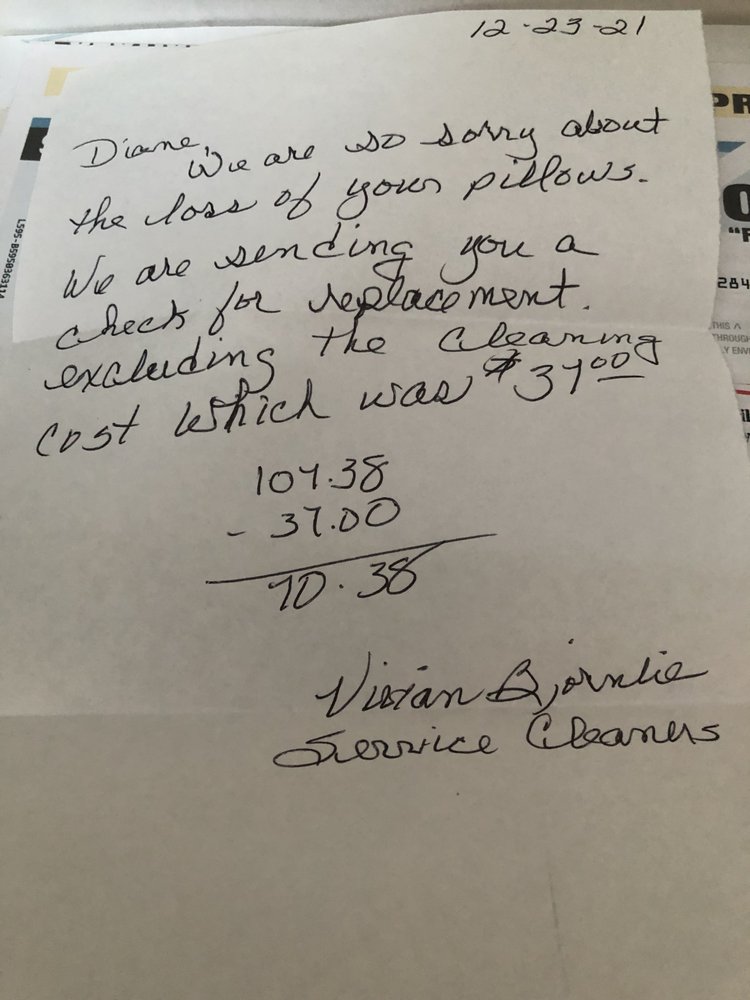 12-23-21
Diane,
We are so sorry about
the loss of your pillows.
We are sending you a
check for replacement.
excluding the cleaning
cost which was $37.00
107.38
- 37.00
70.38
Vivian Bjornlie
Service Cleaners
PR
284
THIS
THROUGH